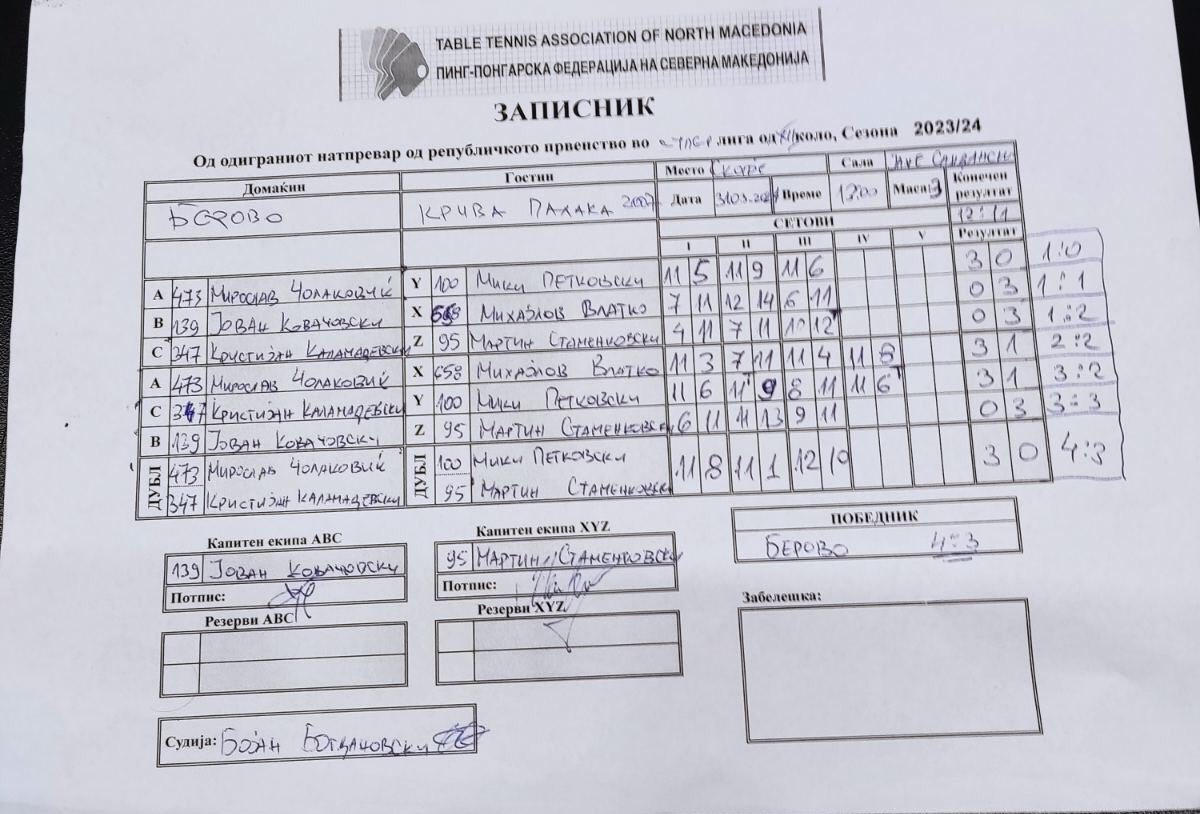 TABLE TENNIS ASSOCIATION OF NORTH MACEDONIA
ПИНГ-ПОНГАРСКА ФЕДЕРАЦИЈА НА СЕВЕРНА МАКЕДОНИЈА
ЗАПИСНИК
Од одиграниот натпревар од републичкото првенство во супер лига од коло, Сезона 2023/24
Домаќин Гостин Место Скопје Сала
БЕРОВО КРИВА ПАЛАКА 2007 Дата 31.03.2024 Време 12:00 Маса: 3 Конечен резултат
СЕТОВИ 12:11
I II III IV V Резултат
A 473 Мирослав Чолаковиќ Y 100 Мики Петковски 11 5 11 9 11 6 3 0 1:0
B 139 Јован Ковачовски X 658 Михајлов Влатко 7 11 12 14 6 11 0 3 1:1
C 347 Кристијан Каламадевски Z 95 Мартин Стаменковски 4 11 7 11 10 12 0 3 1:2
A 473 Мирослав Чолаковиќ X 658 Михајлов Влатко 11 3 7 11 11 4 11 8 3 1 2:2
C 347 Кристијан Каламадевски Y 100 Мики Петковски 11 6 11 9 8 11 11 6 3 1 3:2
B 139 Јован Ковачовски Z 95 Мартин Стаменковски 6 11 11 13 9 11 0 3 3:3
ДУБЛ 473 Мирослав Чолаковиќ ДУБЛ 100 Мики Петковски 11 8 11 1 12 10 3 0 4:3
347 Кристијан Каламадевски 95 Мартин Стаменковски
Капитен екипа ABC Капитен екипа XYZ ПОБЕДНИК
139 Јован Ковачовски 95 Мартин Стаменковски БЕРОВО 4:3
Потпис: Потпис:
Резерви ABC Резерви XYZ Забелешка:
Судија: Бојан Богдановски